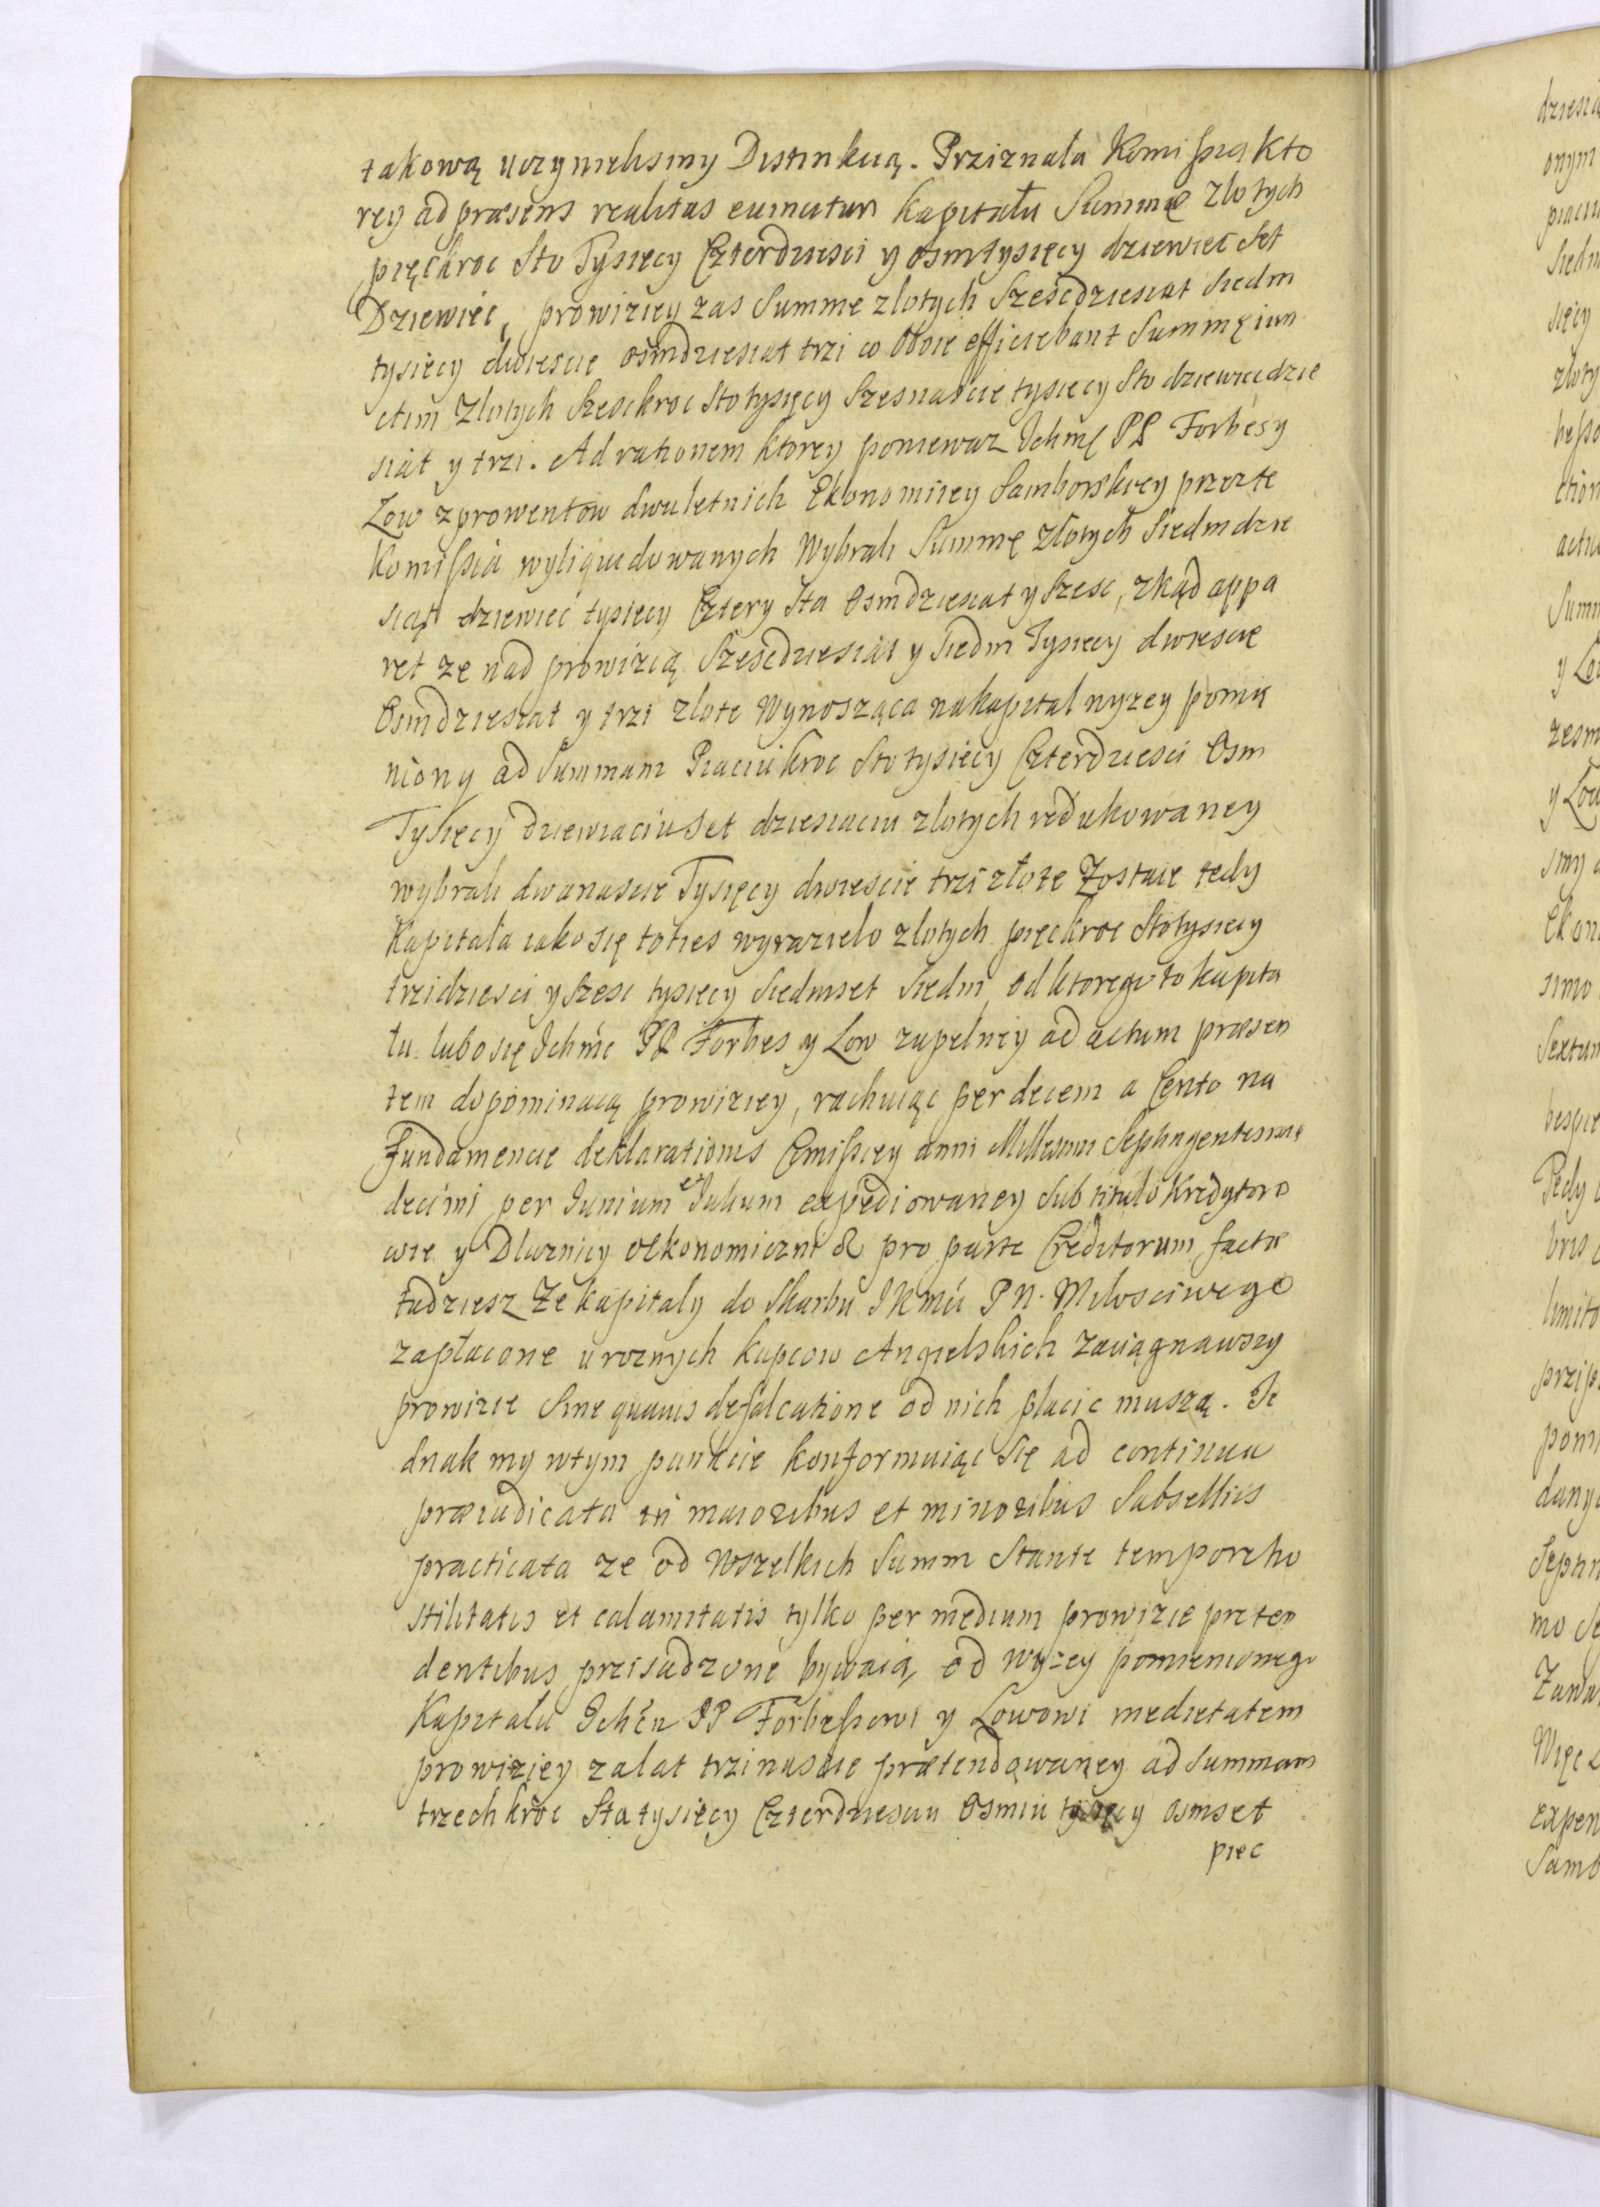 takową uczynielismy Distinkcią. Prziznała Komissia kto
rey ad præsens realitas eumutur kapitału Summę złotych
pięckroc Sto Tysięcy Czterdziesci y osmtysięcy dziewięc Set
Dziewięc, prowiziey zas Summe złotych Szescdziesiat Siedm
tysięcy dwiescie osmdziesiat trzi co oboie efficiebant Summę iun
ctim Złotych Szesckroc Stotysięcy Szesnascie tysięcy Sto dziewiecdzie
siat y trzi. Ad rationem ktorey poniewaz Ichmę PP Forbes y
Low z prowentow dwuletnich Ekonomiiey Samborskiey przezte
Komissia wyliquidowanych Wybrali Summę złotych Siedmdzie
siąt dziewiec tysięcy Cztery Sta Osmdziesiat y Szesc, zkąd appa
ret ze nad prowizią Szescdziesiat y Siedm Tysięcy dwiescie
Osmdziesiat y trzi złote Wynosząca nakapitał nyzey pomię
niony ad Summam Piaciukroc Stotysięcy Czterdziesci Osm
Tysięcy dziewiaciuset dziesiaciu złotych redukowaney
wybrali dwanascie Tysięcy dwiescie trzi złote Zostaie tedy
Kapitała iako się toties wyrazieło złotych pięckroc Stotysięcy
trzidziesci y szesc tysięcy Siedmset Siedm, od ktorego to kapita
łu lubo się Ichmc PP Forbes y Low zupełney ad actum præsen
tem dopominaią prowiziey, rachuiąc per decem a Cento na
fundamencie deklarationis Comissiey anni Millesimi Septingentesimi
decimi per Iunium et Iulium expediowaney Sub titulo Kredytoro
wie y Dłuznicy oekonomiczni & pro parte Creditorum factæ
tudziesz Ze kapitały do Skarbu IKMci P N. Miłosciwego
zapłacone u roznych kupcow Angielskich zaciągnawszy
prowizie Sine quavis defalcatione od nich płacic muszą. Ie
dnak my wtym punkcie konformuiąc Się ad continua
præiudicata in maioribus et minoribus Subselliis
practicata ze od Wszelkich Summ Stante tempore ho
stilitatis et calamitatis tylko per medium prowizie preten
dentibus przisadzone bywaią, od wyzey pomienionego
Kapitału Ichcu PP Forbessowi y Lowowi medietatem
prowiziey zalat trzinascie prætendowaney ad Summam
trzechkroc Sta tysięcy Czterdziesciu Osmiu tysięcy osmset
piec
dziesią
onym
Siedm
sięcy
złoty
ction
Summ
y Lo
zesm
y Low
smy
Ekon
simo
Sextum
Tedy
przip
pomi
dany
mo
Więc
expen
Samb